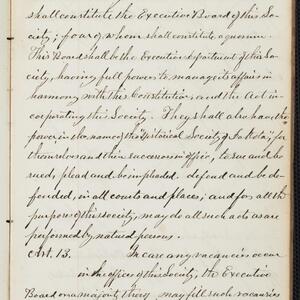 shall constitute the Executive Board of this So-
ciety; four of whom shall constitute a quorum.
This Board shall be the Executive department of this So-
ciety, having full power to manage its affairs in
harmony with this Constitution, and the Act in-
corporating this Society. They shall also have the
power in the name of the "Historical Society of Dakota", for
themselves and their successors in office, to sue and be
sued, plead and be impleaded, defend and be de-
fended, in all courts and places; and for all the
purposes of this society, may do all such acts as are
performed by natural persons.
Art. 13. In case any vacancies occur
in the offices of this Society, the Executive
Board or a majority thereof may fill such vacancies